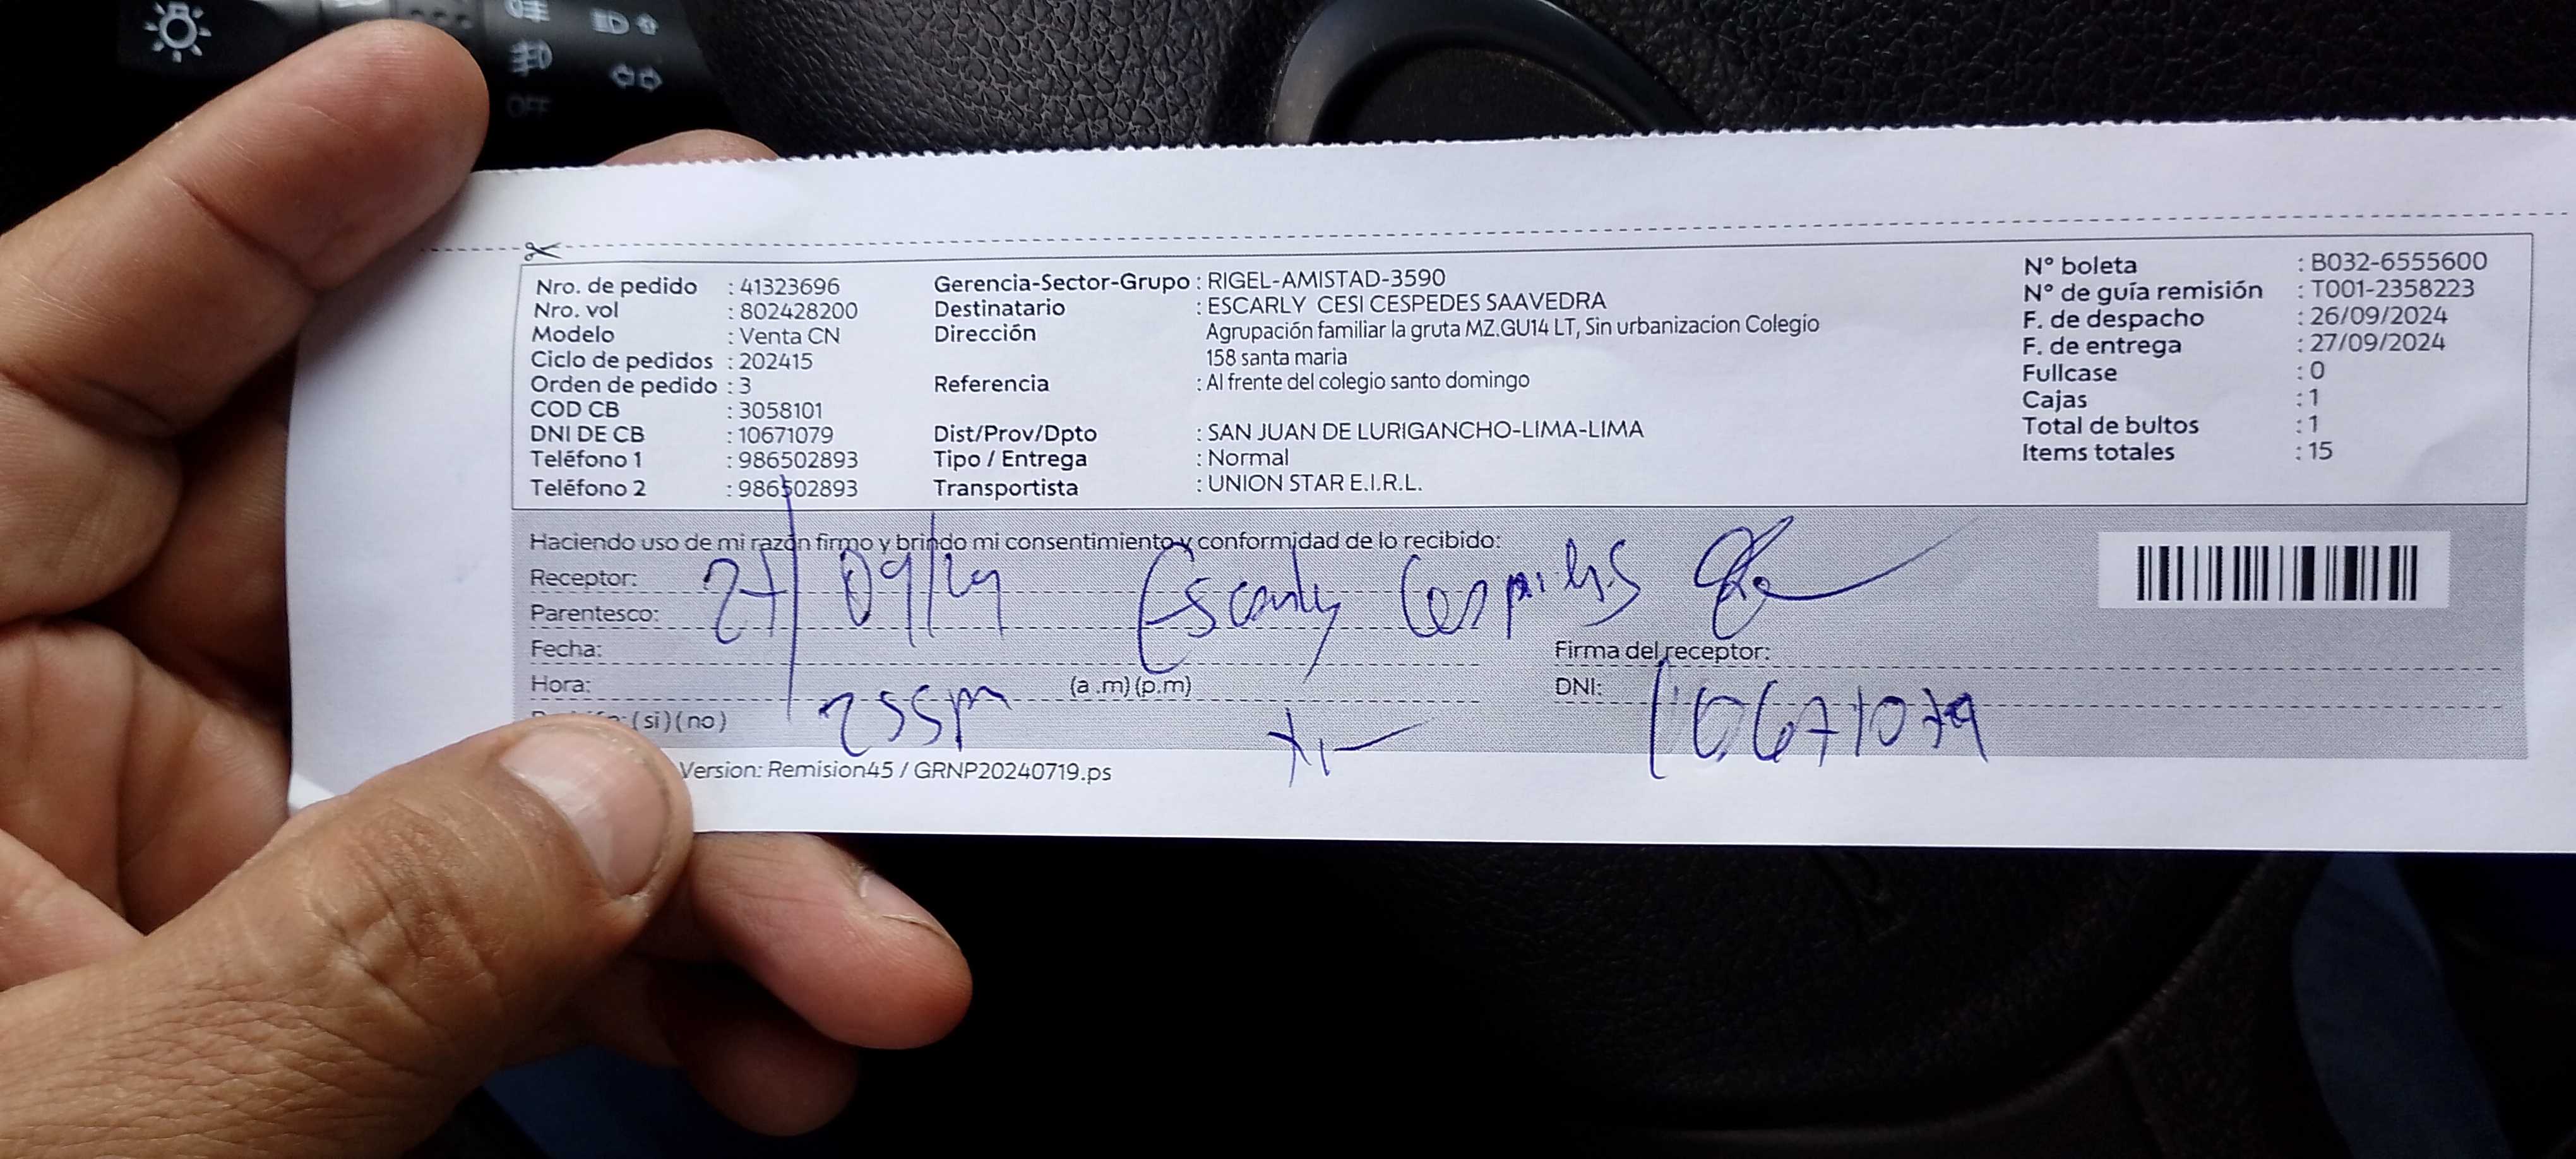 OFF
Nro. de pedido : 41323696
Nro. vol : 802428200
Modelo : Venta CN
Ciclo de pedidos : 202415
Orden de pedido : 3
COD CB : 3058101
DNI DE CB : 10671079
Teléfono 1 : 986502893
Teléfono 2 : 986502893
Gerencia-Sector-Grupo : RIGEL-AMISTAD-3590
Destinatario : ESCARLY CESI CESPEDES SAAVEDRA
Dirección Agrupación familiar la gruta MZ.GU14 LT, Sin urbanizacion Colegio
158 santa maria
Referencia : Al frente del colegio santo domingo
Dist/Prov/Dpto : SAN JUAN DE LURIGANCHO-LIMA-LIMA
Tipo / Entrega : Normal
Transportista : UNION STAR E.I.R.L.
N° boleta : B032-6555600
N° de guía remisión : T001-2358223
F. de despacho : 26/09/2024
F. de entrega : 27/09/2024
Fullcase : 0
Cajas : 1
Total de bultos : 1
Items totales : 15
Haciendo uso de mi razón firmo y brindo mi consentimiento y conformidad de lo recibido:
Receptor:
Parentesco:
27/09/24 Escarly Cespedes
Fecha:
Firma del receptor:
Hora: (a .m) (p.m)
DNI: 10671079
(si) (no) 255pm
Version: Remision45 / GRNP20240719.ps